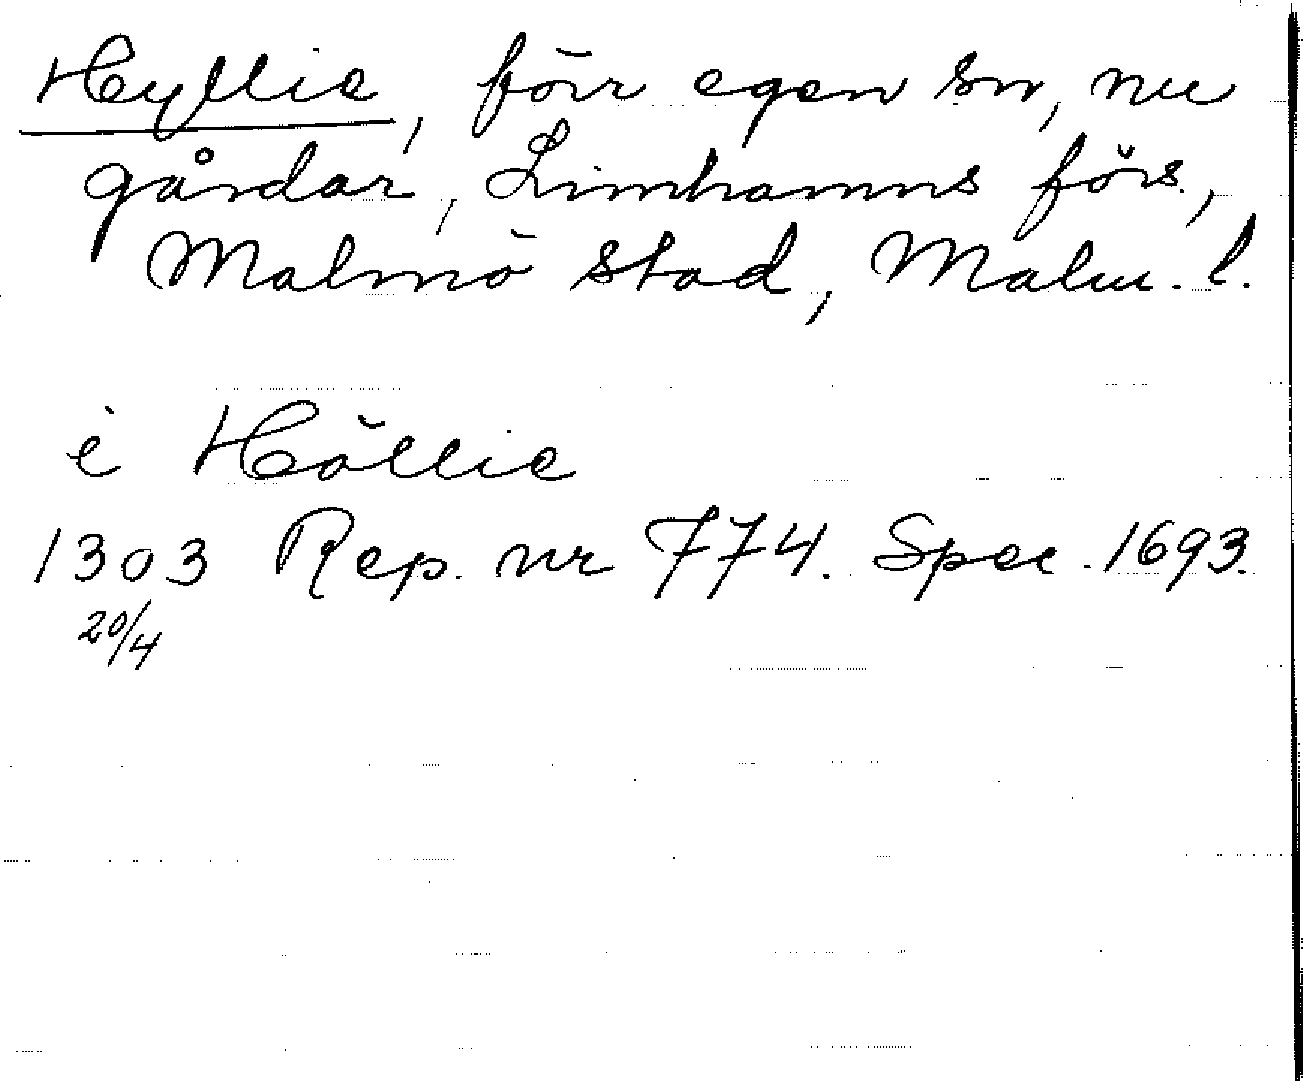 Hyllie, förr egen sn, nu
gårdar, Limhamns förs.,
Malmö stad, Malm. l.
i Höllie
1303 Rep. nr 774. Spec. 1693.
20/4